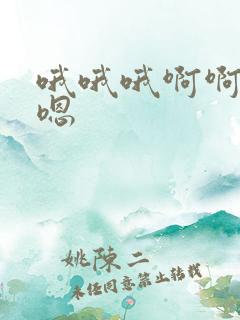 哦哦哦啊啊
嗯
姚陈二
未经同意禁止转载